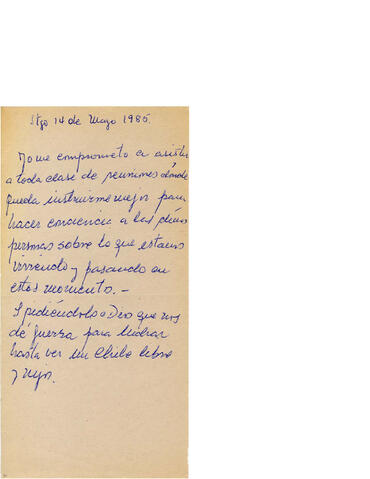 Stgo 14 de Mayo 1985.
Yo me comprometo a asistir
a toda clase de reuniones dónde
pueda instruirme mejor para
hacer conciencia a las demás
personas sobre lo que estamos
viviendo y pasando en
estos momento. -
I pidiéndole a Dios que nos
de fuerza para luchar
hasta ver un Chile libre
y